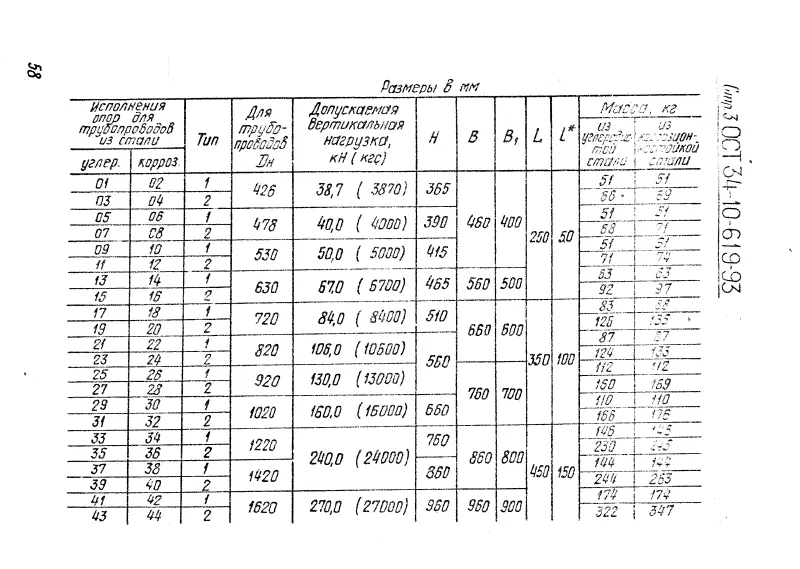 58
Размеры в мм
Стр. 3 ОСТ 34-10-619-93
Исполнения опор для трубопроводов из стали
Тип
Для трубопроводов Dн
Допускаемая вертикальная нагрузка, кН (кгс)
H
B
B₁
L
l*
Масса, кг
углер.
корроз.
из углеродистой стали
из коррозионностойкой стали
01 02 1 426 38,7 (3870) 365 460 400 250 50 51 51
03 04 2 69
05 06 1 478 40,0 (4000) 390 51 51
07 08 2 68 71
09 10 1 530 50,0 (5000) 415 51 51
11 12 2 71 74
13 14 1 630 67,0 (6700) 465 560 500 63 63
15 16 2 92 97
17 18 1 720 84,0 (8400) 510 660 600 350 100 83
19 20 2 126 135
21 22 1 820 106,0 (10600) 560 87 87
23 24 2 124 133
25 26 1 920 130,0 (13000) 760 700 112 112
27 28 2 160 169
29 30 1 1020 160,0 (16000) 660 110 110
31 32 2 166 176
33 34 1 1220 240,0 (24000) 760 860 800 450 150 146
35 36 2 230
37 38 1 1420 860 144 144
39 40 2 244 263
41 42 1 1620 270,0 (27000) 960 960 900 174 174
43 44 2 322 347